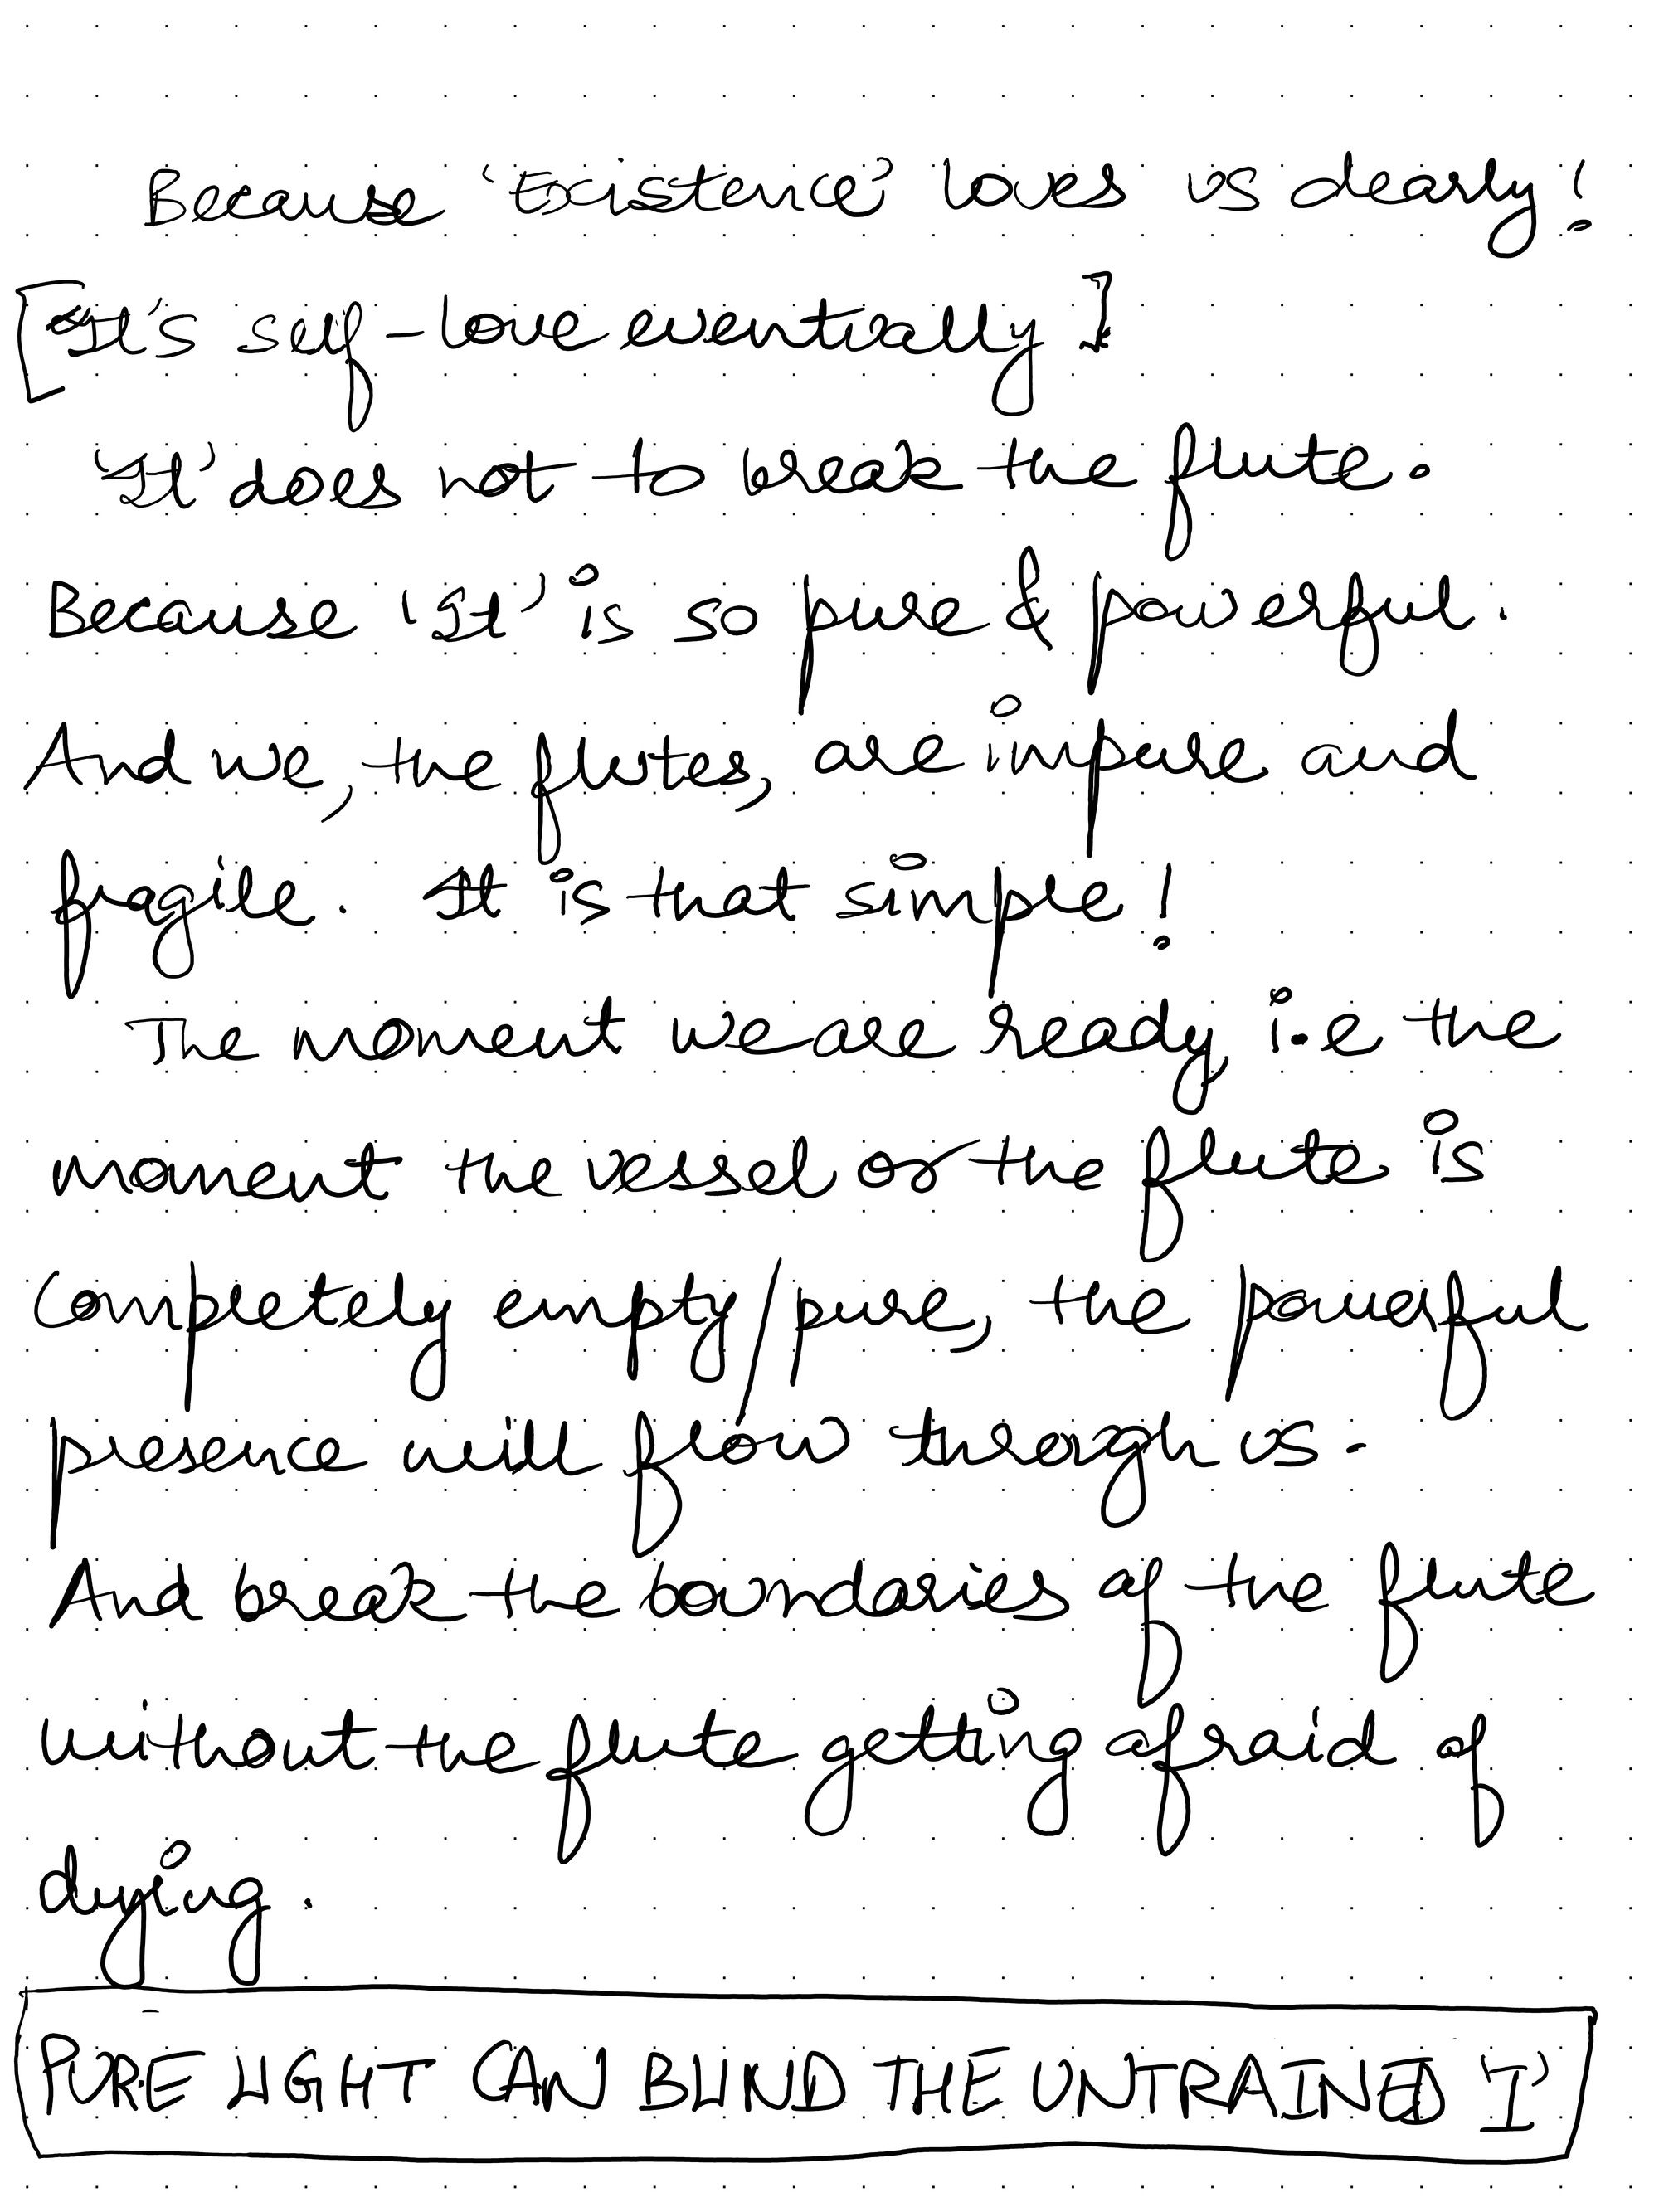 Because 'Existence' loves us dearly!
[It's self-love eventually]
'It' does not to break the flute.
Because 'It' is so pure & powerful.
And we, the flutes, are impure and
fragile. It is that simple!
The moment we are ready i.e the
moment the vessel or the flute is
completely empty/pure, the powerful
presence will flow through us.
And break the boundaries of the flute
without the flute getting afraid of
dying.
PURE LIGHT CAN BLIND THE UNTRAINED 'I'